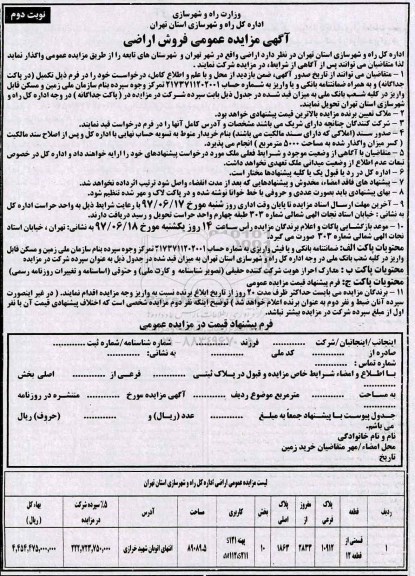 نوبت دوم
وزارت راه و شهرسازی
اداره کل راه و شهرسازی استان تهران
آگهی مزایده عمومی فروش اراضی
اداره کل راه و شهرسازی استان تهران در نظر دارد اراضی واقع در شهر تهران و شهرستان های تابعه را از طریق مزایده عمومی واگذار نماید
لذا متقاضیان می توانند پس از آگاهی از شرایط، در مزایده شرکت نمایند.
۱ – متقاضیان می توانند از تاریخ صدور آگهی، ضمن بازدید از محل و با علم و اطلاع کامل، درخواست خود را در فرم ذیل تکمیل (در پاکت
جداگانه) و به همراه ضمانتنامه بانکی و یا واریز به شماره حساب ۲۱۷۳۷۱۱۲۰۲۰۰۱ تمرکز وجوه سپرده بنام سازمان ملی زمین و مسکن قابل
واریز در کلیه شعب بانک ملی به میزان قید شده در جدول ذیل بابت سپرده شرکت در مزایده در (پاکت جداگانه) در وجه اداره کل راه و
شهرسازی استان تهران تحویل نمایند.
۲ – ملاک تعیین برنده مزایده بالاترین قیمت پیشنهادی خواهد بود.
۳ – شرکت کنندگان چنانچه دارای شریک می باشند مشخصات و آدرس کامل آنها را در فرم درخواست قید نمایند.
۴ – صدور سند (املاکی که دارای سند مالکیت می باشند) بنام خریدار منوط به تسویه حساب نهایی با اداره کل و پس از اصلاح سند مالکیت
(کسر میزان واگذار شده به مساحت ۵۰۰۰ مترمربع) انجام می پذیرد.
۵ – متقاضیان با آگاهی از وضعیت موجود و شرایط فعلی ملک مورد درخواست پیشنهادهای خود را ارایه خواهند داد و اداره کل در خصوص
تبعات عدم اطلاع از وضعیت میدانی ملک تعهدی نخواهد داشت.
۶ – اداره کل در رد یا قبول یک یا کلیه پیشنهادها مختار است.
۷ – پیشنهاد های فاقد امضاء، مخدوش و پیشنهادهایی که بعد از مدت انقضاء واصل شود ترتیب اثر داده نخواهد شد.
۸ – بهای پیشنهادی باید بصورت عددی و حروفی با خط خوانا نوشته شده و در پاکت لاک و مهر شده تنظیم شود.
۹ – آخرین مهلت ارسال اسناد مزایده تا پایان وقت اداری روز شنبه مورخ ۹۷/۰۶/۱۷ با رعایت شرایط ذیل به واحد حراست اداره کل
به نشانی : خیابان استاد نجات الهی شمالی شماره ۳۰۳ طبقه چهارم واحد حراست تحویل و رسید دریافت دارند.
۱۰ – موعد بازگشایی پاکات و اعلام برندگان مزایده راس ساعت ۱۴ روز یکشنبه مورخ ۹۷/۰۶/۱۸ به نشانی: تهران ، خیابان استاد
نجات الهی شمالی شماره ۳۰۳ صورت می گیرد.
محتویات پاکت الف: ضمانتنامه بانکی و یا فیش واریزی به شماره حساب ۲۱۷۳۷۱۱۲۰۲۰۰۱ تمرکز وجوه سپرده بنام سازمان ملی زمین و مسکن قابل
واریز در کلیه شعب بانک ملی در وجه اداره کل راه و شهرسازی استان تهران به میزان قید شده در جدول ذیل به عنوان سپرده شرکت در مزایده
محتویات پاکت ب : مدارک احراز هویت شرکت کننده حقیقی (تصویر شناسنامه و کارت ملی) و حقوقی (اساسنامه و تغییرات روزنامه رسمی)
محتویات پاکت ج: فرم پیشنهاد قیمت مزایده عمومی
۱۱ – برندگان مزایده می بایست حداکثر ظرف مدت ۲۰ روز از تاریخ ابلاغ برنده نسبت به واریز وجه مزایده اقدام نمایند. (در غیر اینصورت
سپرده آنان ضبط و نفر دوم به عنوان برنده اعلام خواهد شد) توضیح اینکه نفر دوم مزایده شخصی است که اختلاف پیشنهادی قیمت آن با نفر
اول از مبلغ سپرده شرکت در مزایده بیشتر نباشد.
فرم پیشنهاد قیمت در مزایده عمومی
اینجانب/اینجانبان/شرکت .......... فرزند .......... شماره شناسنامه/شماره ثبت ..........
صادره از .......... کد ملی .......... به نشانی: ..........
شماره تماس: ..........
با اطلاع و امضاء شرایط خاص مزایده و قبول در پلاک ثبتی .......... فرعی از .......... اصلی بخش ..........
به مساحت .......... مترمربع موضوع ردیف .......... آگهی مزایده مورخ .......... منتشره در روزنامه ..........
جدول پیوست با پیشنهاد قیمت جمعاً به مبلغ .......... عدد (ریال) و .......... (حروف) ریال
می باشم.
نام و نام خانوادگی
محل امضاء/مهر متقاضیان خرید زمین
تاریخ
لیست مزایده عمومی اراضی اداره کل راه و شهرسازی استان تهران
ردیف قطعه پلاک فرعی مفروز از پلاک اصلی بخش کاربری مساحت آدرس ۵٪ سپرده شرکت در مزایده بهاء کل (ریال)
۱ قسمتی از قطعه ۱۲ ۱۰۹۱۲ ۲۸۳۳ ۱۸۶۳ ۱۰ ۸۹۰۸۹.۵ انتهای اتوبان شهید خرازی